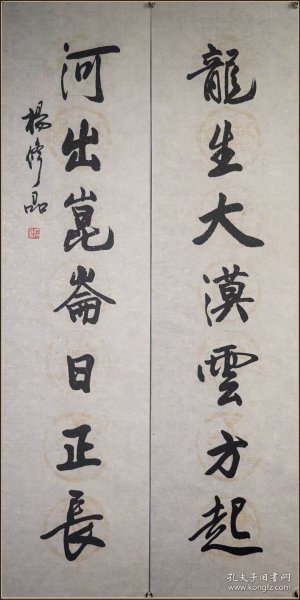 龍生大漠雲方起
河出崑崙日正長
楊修品
孔夫子旧书网
www.kongfz.com